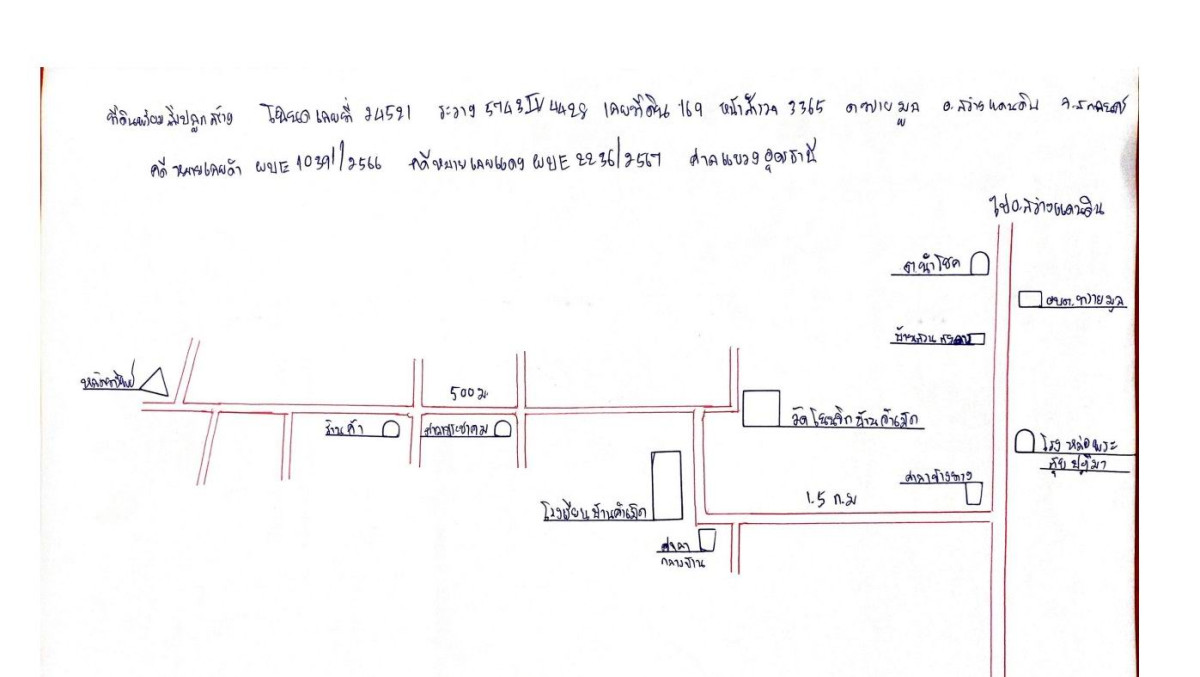 ที่ดินพร้อมสิ่งปลูกสร้าง โฉนดเลขที่ 24521 ระวาง 5743 IV 4428 เลขที่ดิน 169 หน้าสำรวจ 3365 ต.ทรายมูล อ.สว่างแดนดิน จ.สกลนคร
คดีหมายเลขดำ ผบE 1039/2566 คดีหมายเลขแดง ผบE 2236/2567 ศาลแขวงอุดรธานี
ไปอ.สว่างแดนดิน
อบต.ทรายมูล
บ้านสวน
หลักทรัพย์
500 ม
ร้านค้า
ศาลาประชาคม
โรงหล่อพระ
ศาลาข้างทาง
1.5 ก.ม
โรงเรียนบ้านคำเม็ก
ศาลา
กลางบ้าน